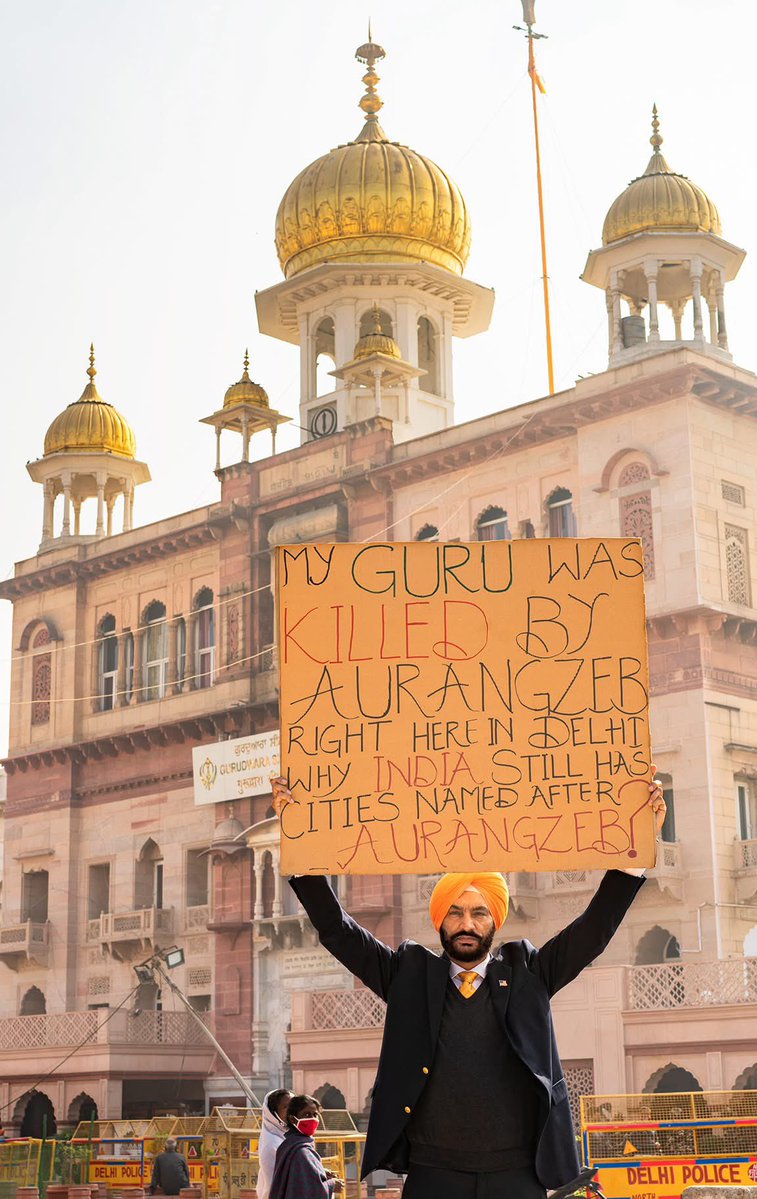 MY GURU WAS
KILLED BY
AURANGZEB
RIGHT HERE IN DELHI
WHY INDIA STILL HAS
CITIES NAMED AFTER
AURANGZEB?
ਗੁਰਦੁਆਰਾ
GURUDWARA
गुरुद्वारा
DELHI POLICE
DELHI POLICE